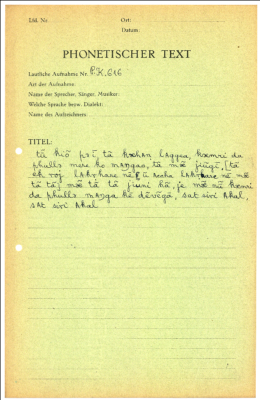 Lfd. Nr.
Ort:
Datum:
PHONETISCHER TEXT
Lautliche Aufnahme Nr. P.K.616
Art der Aufnahme:
Name der Sprecher, Sänger, Musiker:
Welche Sprache bezw. Dialekt:
Name des Aufzeichners:
TITEL:
tā kiõ pɔī, tā kæhan lʌgyea, kæmri da
phulls mere ko mangao, tā mæ jiũgī, tā
ek roj lʌkṛhare nē ū accha lʌkṛhare nē mæ
tā tāj mæ tā tā jiuni hã, je mæ nū kæmri
da phulls maŋga kē dēvēgā, sat siri Akal,
sat siri Akal